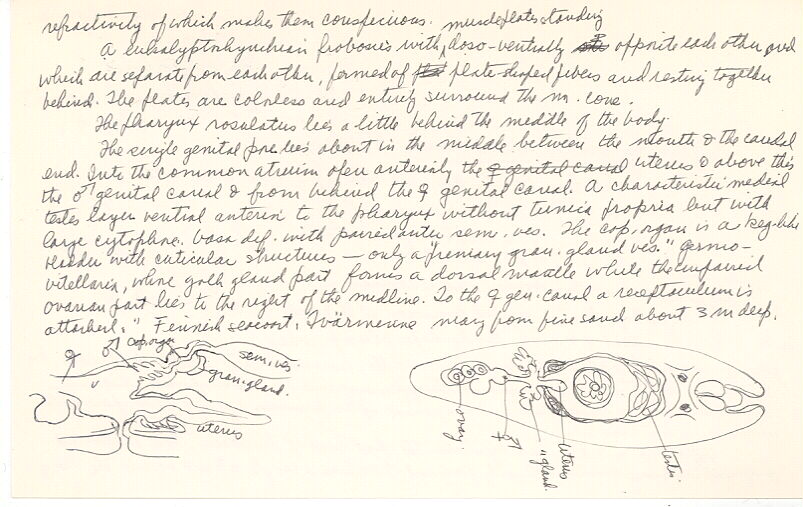 refractivity of which makes them conspicuous.
muscle plates standing
A eukalyptorhynchian proboscis with doso-ventrally opposite each other and
which are separate from each other, formed of plate shaped fibers and resting together
behind. The plates are colorless and entirely surround the m. cone.
The pharynx rosulatus lies a little behind the middle of the body.
The single genital pore lies about in the middle between the mouth & the caudal
end. Into the common atrium open anteriorly the ♀ genital canal uterus & above this
the ♂ genital canal & from behind the ♀ genital canal. A characteristic medial
testes layer ventral anterior to the pharynx without tunica propria but with
large cytophore. Vasa def. with paired outer sem. ves. The cop. organ is a keg-like
bladder with cuticular structures — only a "primary gran. gland ves." Germo-
vitellaria, whose yolk gland part forms a dorsal mantle while the unpaired
ovarian part lies to the right of the midline. To the ♀ gen. canal a receptaculum is
attached." Finnish seacoast, Tvärmenine many from fine sand about 3 m deep.
♀
♂
cop. organ
sem. ves.
gran. gland.
uterus
ovary.
♀
" gland.
uterus
testis.